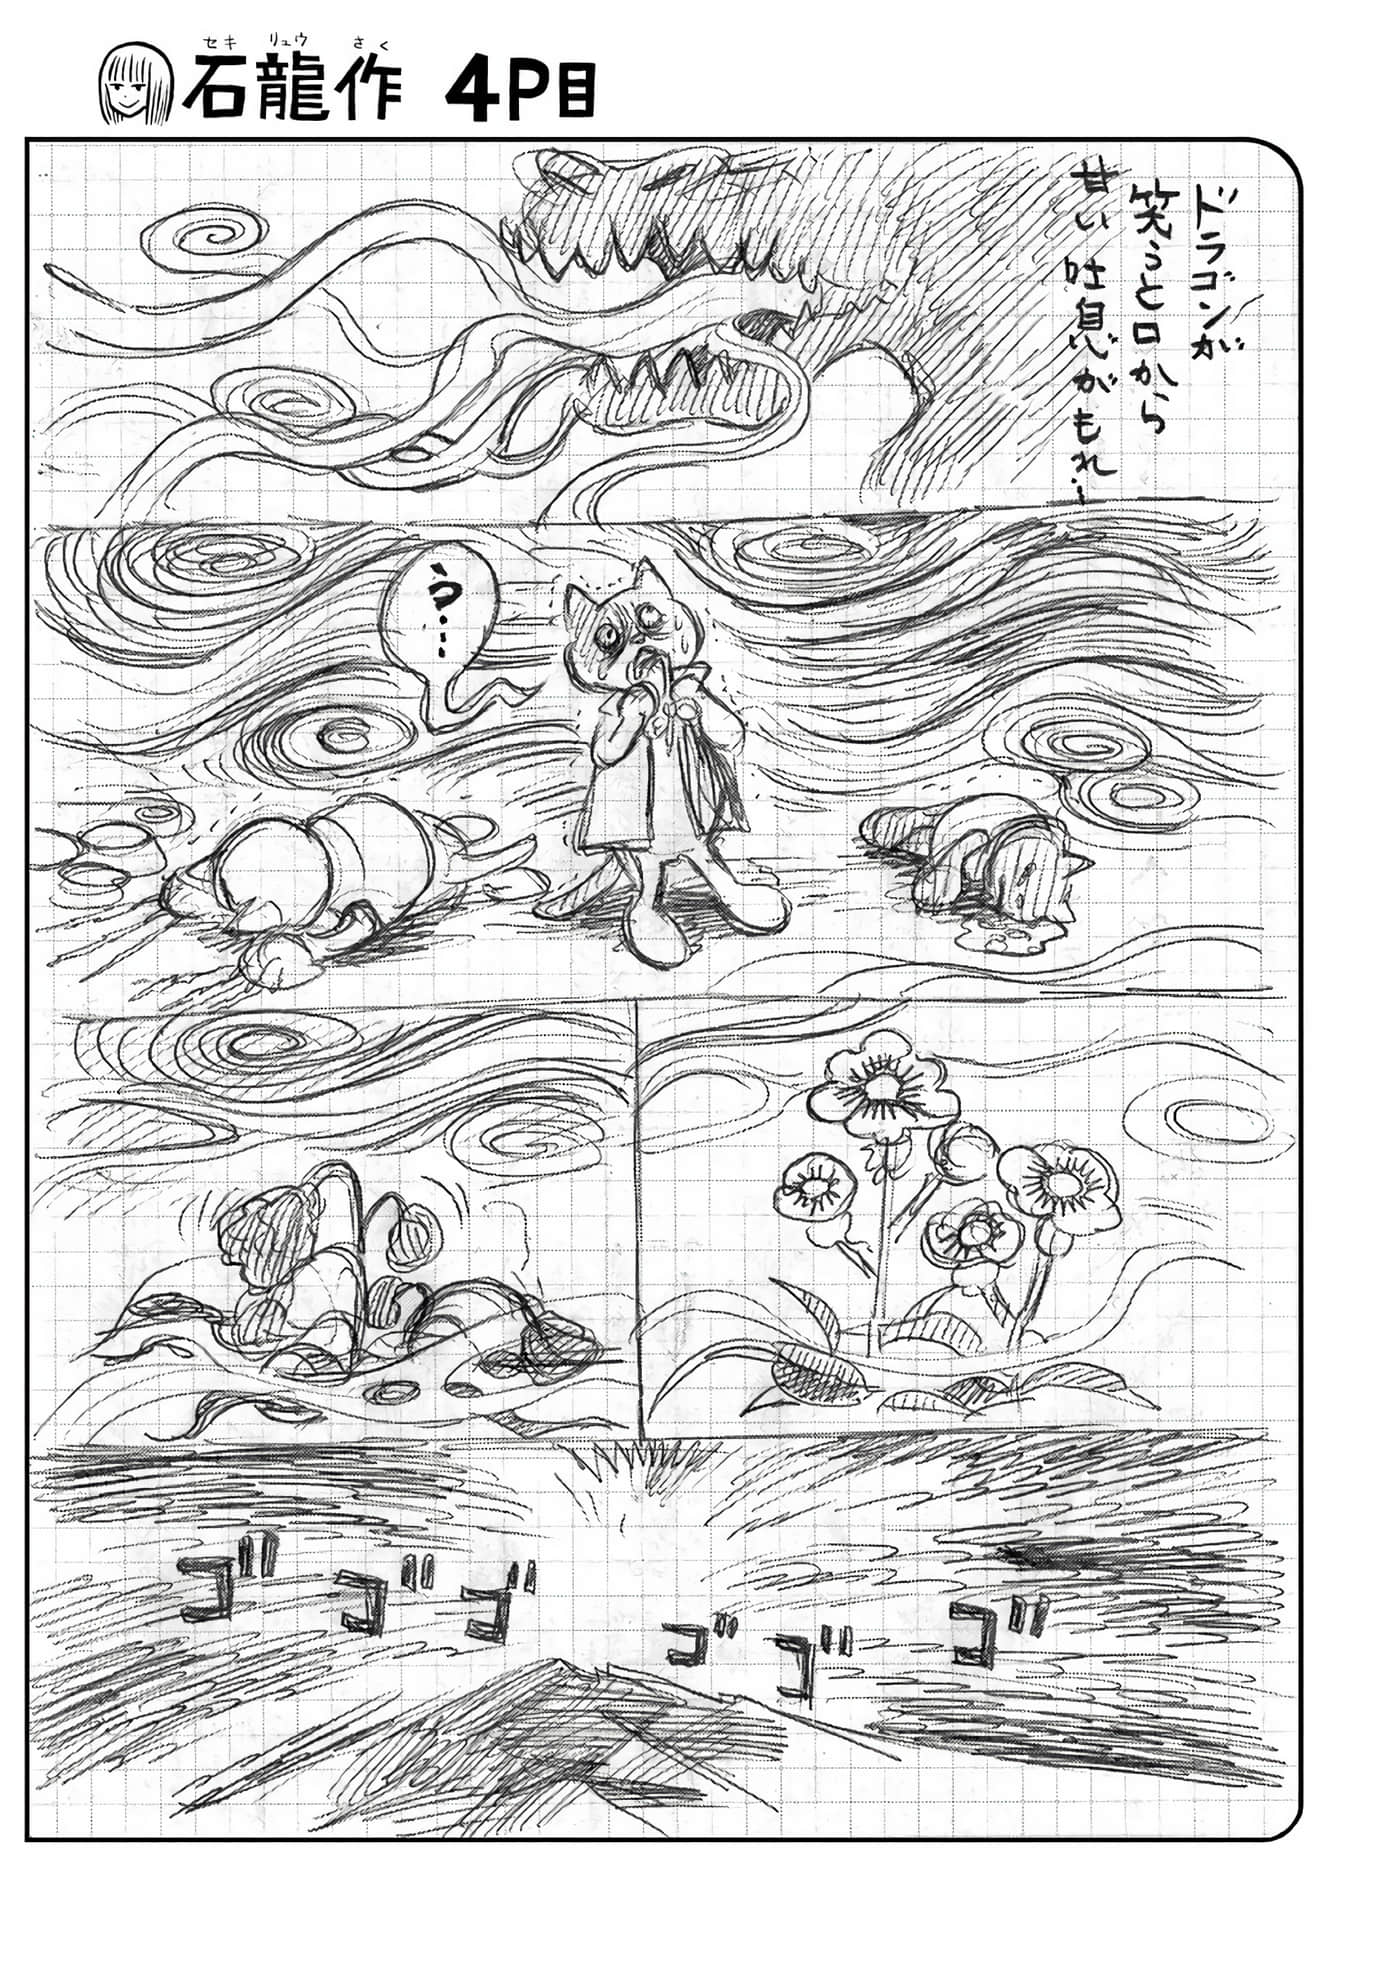 セキ リュウ さく
石龍作 4P目
ドラゴンが
笑うと口から
甘い吐息がもれ…
う…
ゴゴゴゴゴゴ